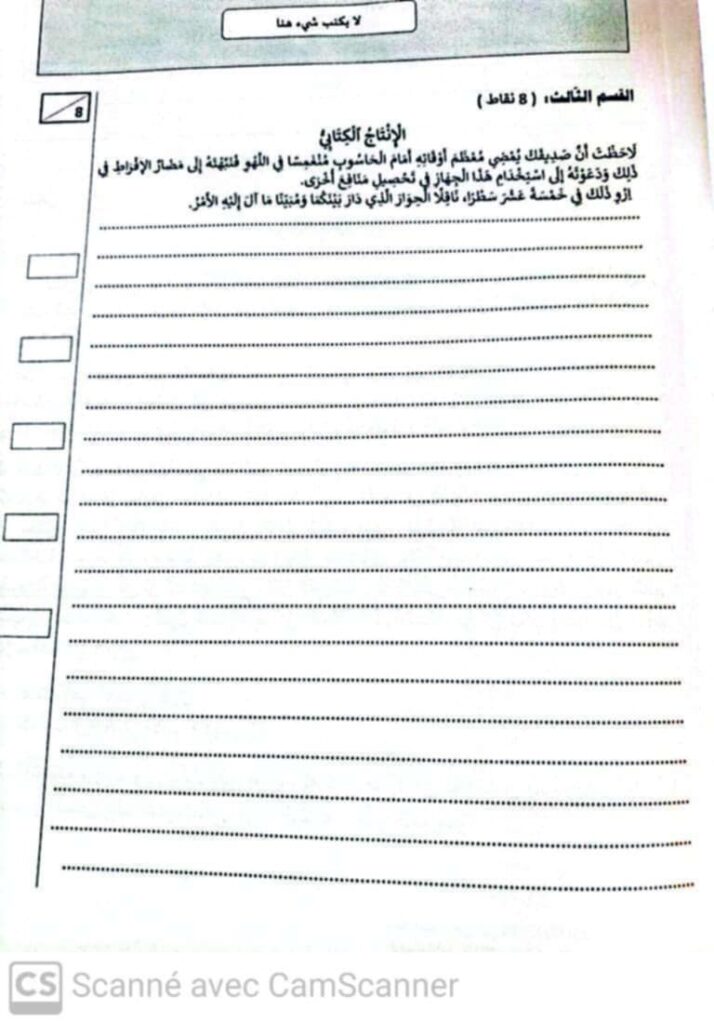 لا يكتب شيء هنا
القسم الثّالث: ( 8 نقاط )
8
الْإِنْتَاجُ الْكِتَابِيُّ
لَاحَظْتَ أَنَّ صَدِيقَكَ يُمْضِي مُعْظَمَ أَوْقَاتِهِ أَمَامَ الْحَاسُوبِ مُنْغَمِسًا فِي اللَّهْوِ فَنَبَّهْتَهُ إِلَى مَضَارِّ الْإِفْرَاطِ فِي
ذَلِكَ وَدَعَوْتَهُ إِلَى اسْتِخْدَامِ هَذَا الْجِهَازِ فِي تَحْصِيلِ مَنَافِعَ أُخْرَى.
اِرْوِ ذَلِكَ فِي خَمْسَةَ عَشَرَ سَطْرًا، نَاقِلًا الْحِوَارَ الَّذِي دَارَ بَيْنَكُمَا وَمُبَيِّنًا مَا آلَ إِلَيْهِ الْأَمْرُ.
CS Scanné avec CamScanner